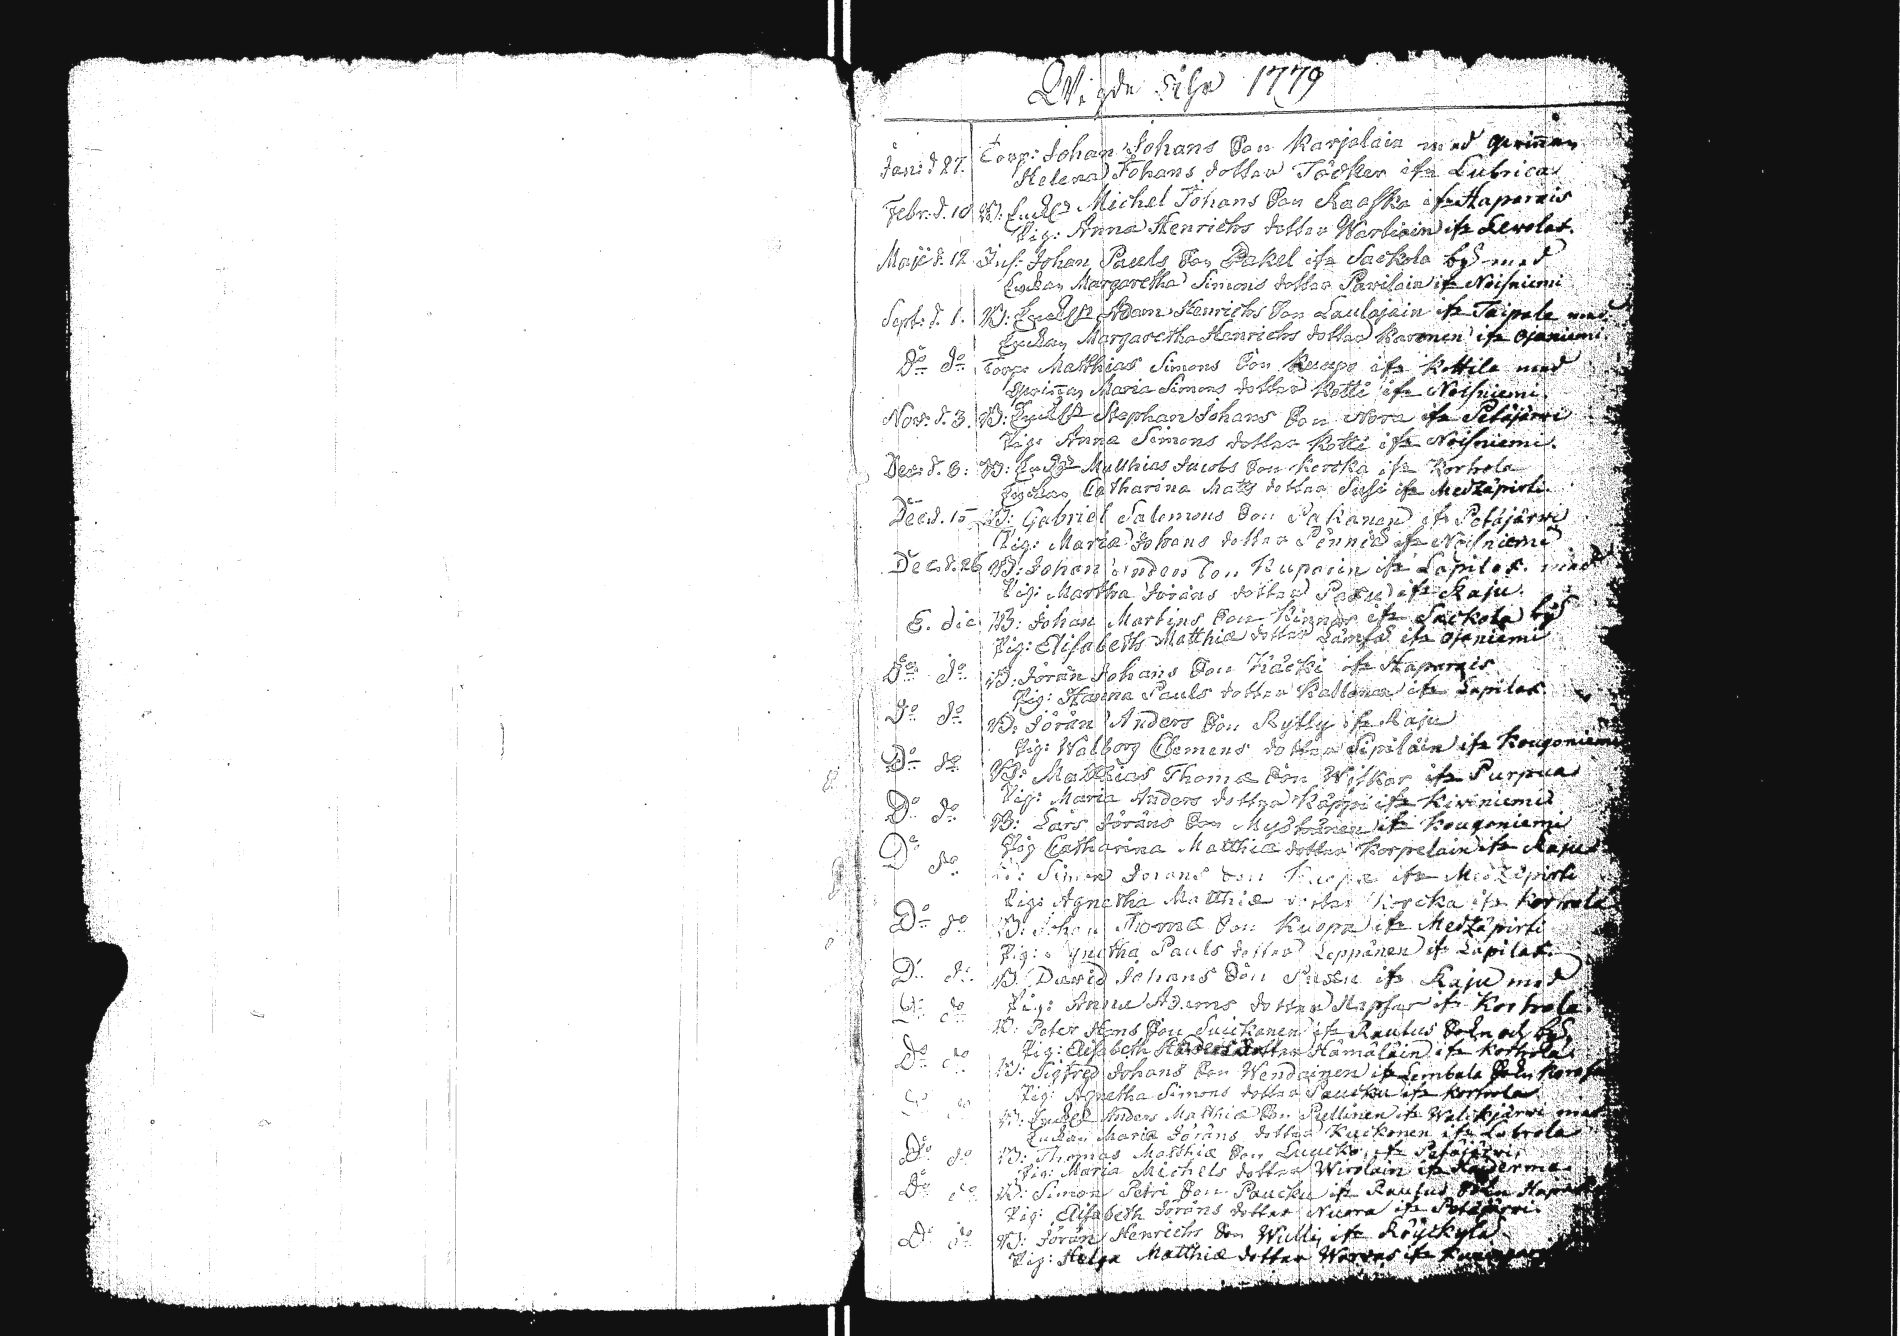 Wigde åhr 1779
Jan: d 27. Corp: Johan Johans Son Karjalain med qwinnan
Helena Johans dotter Täcker ifr Lubrica
Febr: d. 10 B: Enckl Michel Johans Son Kaaska ifr Haparais
Pig: Anna Henrichs dotter Warliain ifr Lewolax.
Maji d. 12 Inh. Johan Pauls Son Pakel ifr Sackola by med
Enckan Margaretha Simons dotter Pavilain ifr Noisniemi
Sept: d. 1. B: Enckl Adam Henrichs Son Laulajain ifr Taipale med
Enckan Margaretha Henrichs dotter Karonen ifr Ojaniemi.
Do do Corp: Matthias Simons Son Kuapo ifr Kottila med
qwinnan Maria Simons dotter Kotti ifr Noisniemi.
Nov: d. 3. B: Enckl Stephan Johans Son Nora ifr Petäjärvi
Pig: Anna Simons dotter Kotti ifr Noisniemi.
Dec: d. 3: B: Enckl Matthias Jacobs Son Korcka ifr Korhola
Enckan Catharina Mats dotter Susi ifr Medzäpirti.
Dec. d. 15 B: Gabriel Salomons Son Pakanen ifr Petäjärvi
Pig: Maria Johans dotter Penniä ifr Noisniemi
Dec. d. 26 B: Johan Anders Son Kuparin ifr Lapilax. med
Pig: Martha Jöräns dotter Pasu ifr Raju.
E. die B: Johan Martins Son Kinnar ifr Sackola by
Pig: Elisabeth Matthiæ dotter Lämsä ifr Ojaniemi
Do do B: Jörän Johans Son Kiäcki ifr Haparais
Pig: Hanna Pauls dotter Kallonen ifr Lapilax
Do do B: Jörän Anders Son Rytty ifr Raju
Pig: Walborg Clemens dotter Sipiläin ifr Kougoniemi
Do do B: Matthias Thomæ Son Wilkar ifr Purpua
Pig: Maria Anders dotter Käppi ifr Kiviniemi
Do do B: Lars Jöräns Son Mystönen ifr Kougoniemi
Pig Catharina Matthiæ dotter Korpelain ifr Raju
Do do B: Simon Jörans Son Kuopa ifr Medzäpirti
Pig: Agnetha Matthiæ dotter Korcka ifr Korhola
Do do B: Johan Thomæ Son Kuopa ifr Medzäpirti
Pig: Agnetha Pauls dotter Leppänen ifr Lapilax.
Do do B David Johans Son Pusu ifr Raju med
Pig: Anna Adams dotter Hapsar ifr Korhola.
Do do B: Peter Hans Son Suickanen ifr Rautus Sokn och by
Pig: Elisabeth Anders dotter Hämäläin ifr Korhola
Do do B: Sigfred Johans Son Wendainen ifr Lembala Sokn
Pig: Agnetha Simons dotter Paucku ifr Korhola
B: Enckl Anders Matthiæ Son Pullinen ifr Walckjärvi med
Enckan Maria Jöräns dotter Kuckonen ifr Labrola
Do do B: Thomas Matthiæ Son Luucko ifr Petäjärvi,
Pig: Maria Michels dotter Wirolain ifr
Do do B: Simon Petri Son Paucku ifr Rautus Sokn
Pig: Elisabeth Jöräns dotter Nuora ifr Petäjärvi.
Do do B: Jörän Henrichs Son Willi ifr Röyckylä
Pig: Helga Matthiæ dotter Warvas ifr